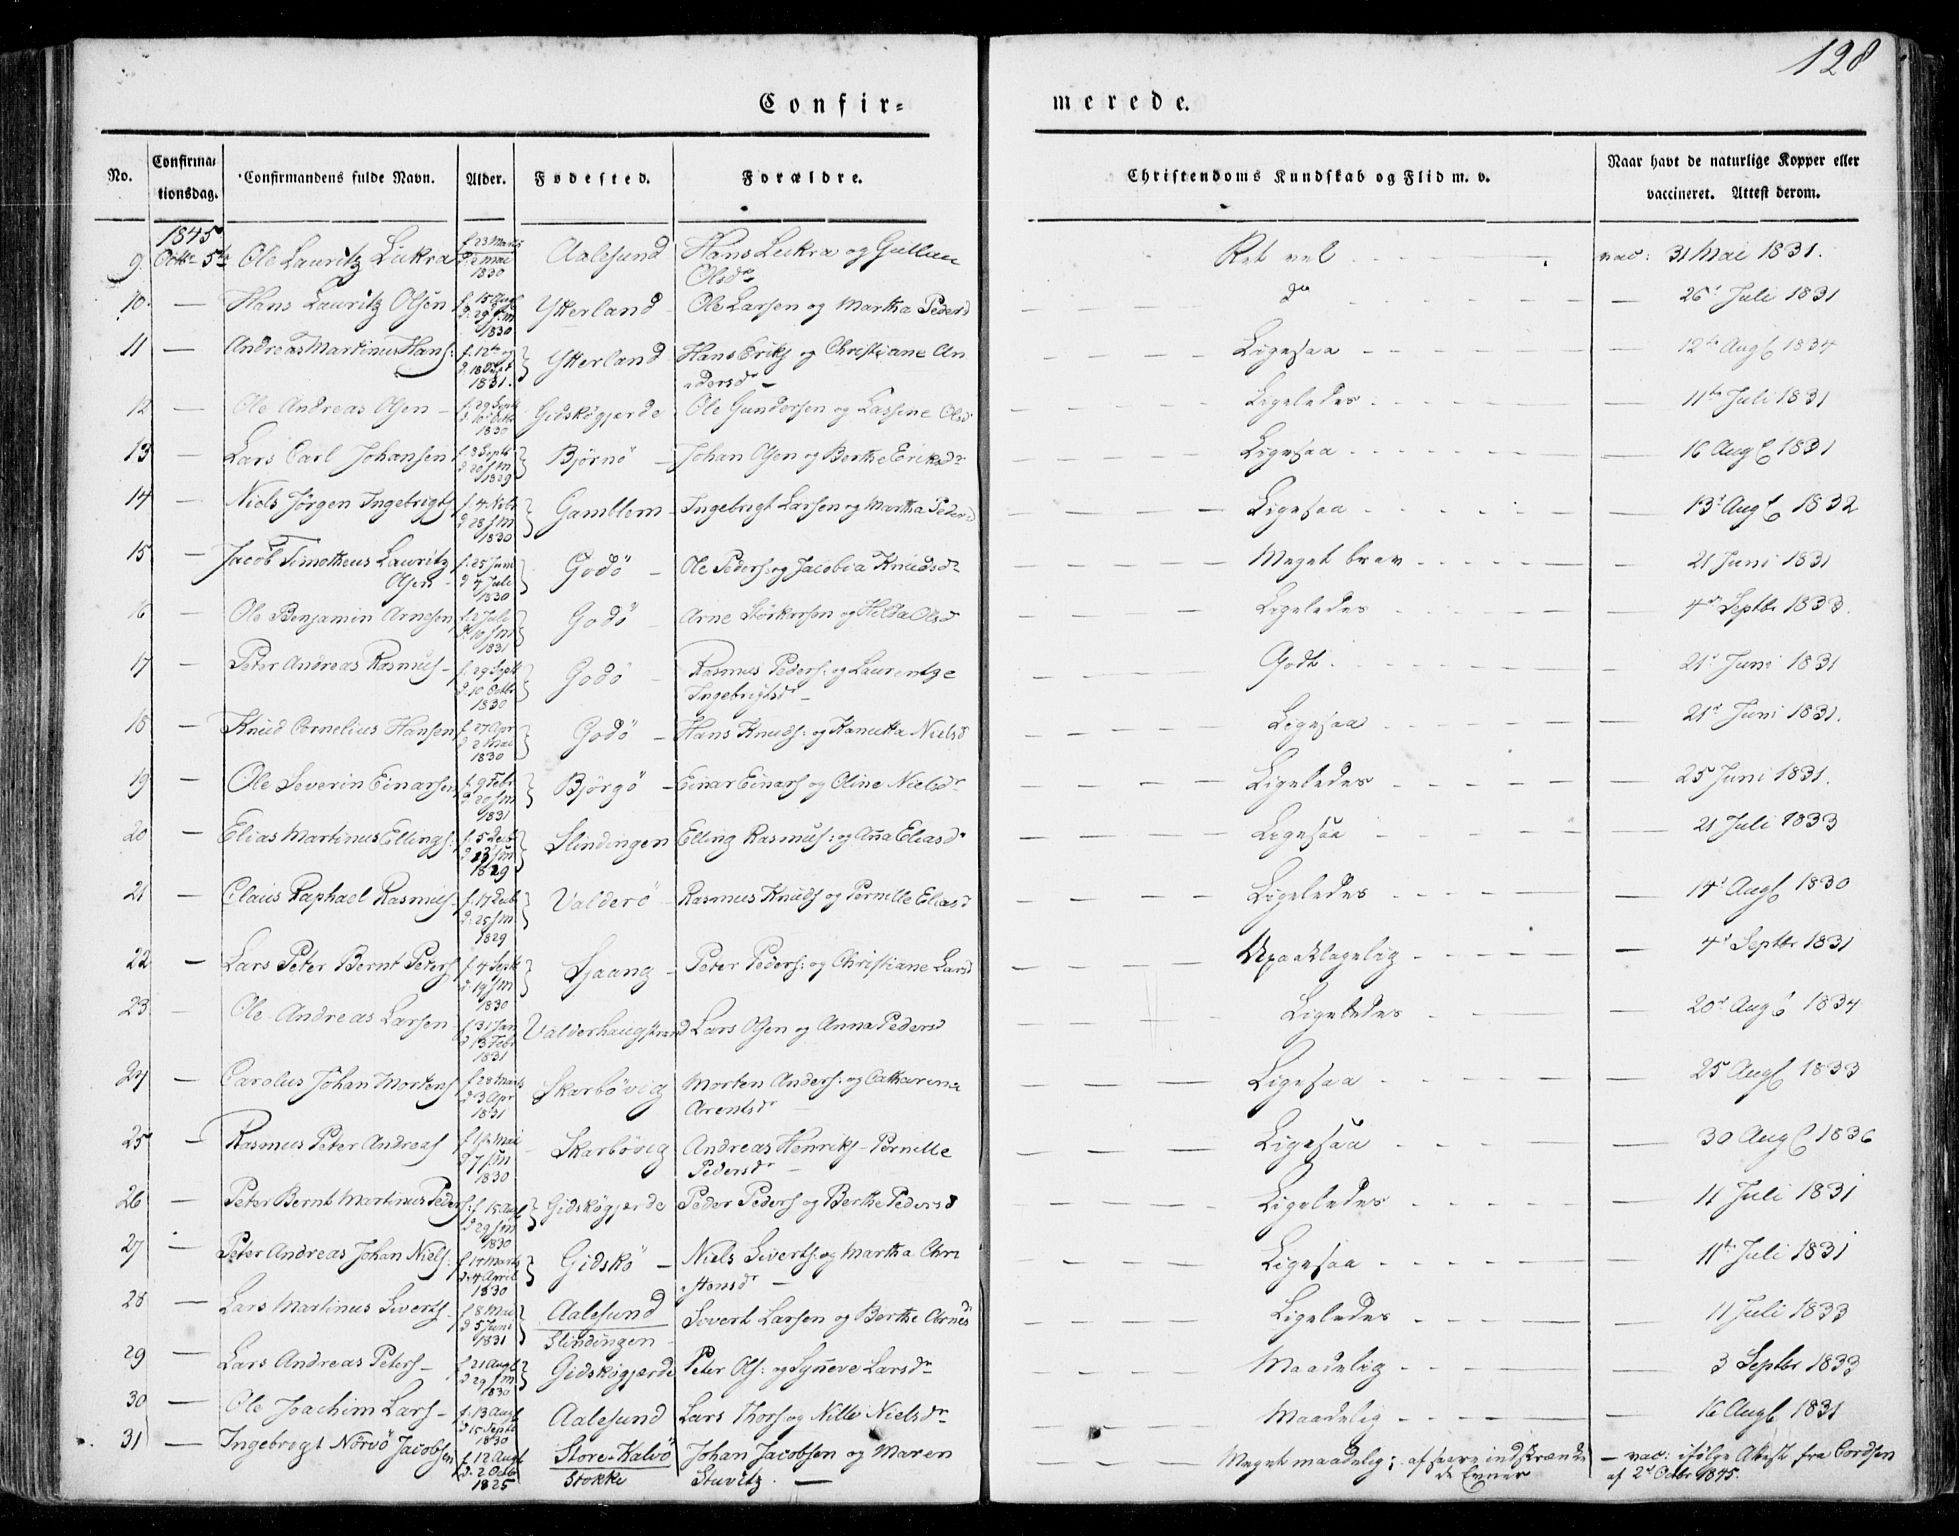 128
Confir=
merede.
No.
Confirma=
tionsdag.
Confirmandens fulde Navn.
Alder.
Fødested.
Forældre.
Christendoms Kundskab og Flid m. v.
Naar havt de naturlige Kopper eller
vaccineret. Attest derom.
1845
9. Octbr 5te Ole Lauritz Leikra f. 23 Marts Aalesund Hans Leikra og Gulline Ret vel vac: 31 Mai 1831.
d. 2 Mai
1830 Olsdr
10. — Hans Lauritz Olsen f. 15 Augs Ytterland Ole Larsen og Martha Pedersd do — 26de Juli 1831
d. 29 s: m
1830
11 — Andreas Martinus Hans: f. 12te og Ytterland Hans Eriks og Christiane An Ligesaa — 12te Augs 1834
d. 18
1831. dersdr
12 — Ole Andreas Olsen f. 29 Septb Gidskøgjerde Ole Gundersen og Lassine Olsd Ligeledes — 11te Juli 1831
d. 10 Octb
1830
13 — Lars Carl Johansen f. 8 Septb Bjørnø Johan Olsen og Berthe Eriksdr Ligesaa — 16 Augs 1831
d. 20 s: m
1829
14 — Niels Jørgen Ingebrigts f. 4 Gamblem Ingebrigt Larsen og Martha Pedersd Ligesaa — 13de Augs 1832
d. 28 s: m
1830
15 — Jacob Timotheus Lauritz f. 25 Juni Godø Ole Peders: og Jacobia Knudsdr Meget brav — 21 Juni 1831
Olsen d 4 Juli
1830
16 — Ole Benjamin Arnesen f. 2 Juli Godø Arne Størkersen og Hilda Olsd Ligeledes — 4de Septbr 1833.
d. 10 s: m
1831
17 — Peter Andreas Rasmus f. 29 Septb Godø Rasmus Peders: og Laurentze Godt — 21de Juni 1831
d. 10 Octbr Ingebrigtsdr
1830
18 — Knud Cornelius Hansen f. 27 Apr Godø Hans Knuds: og Kanutta Nielsd Ligesaa — 21de Juni 1831.
d. 2 Mai
1830
19 — Ole Severin Einarsen f. 9 Febr Bjørgø Einar Einars og Oline Nielsdr Ligeledes — 25 Juni 1831.
d. 20 s: m
1831
20 — Elias Martinus Ellings: f. 5 Decb Slindingen Elling Rasmus: og Ana Eliasd Ligesaa — 21 Juli 1833
d 13 s: m
1829
21 — Claus Raphael Rasmus f. 17 Decb Valderø Rasmus Knuds og Pernille Eliasd Ligeledes — 14de Augs 1830
d. 25 s: m
1829
22 — Lars Peter Bernt Peters f. 4 Septb Sjaang Peter Peders: og Christiane Larsd Upaaklagelig — 4de Septbr 1831
d. 19 s: m
1830
23 — Ole Andreas Larsen f. 31 Jan Valderhaugstrand Lars Olsen og Anna Pedersd Ligeledes — 20de Augs 1834
d 13 Febr
1831
24 — Carolus Johan Mortens f. 28 Marts Skarbøvig Morten Anders: og Catharina Ligesaa — 25 Augs 1833
d 3 Apr Arentsdr
1831
25 — Rasmus Peter Andreas f. 1ste Mai Skarbøvig Andreas Henriks Pernille Ligesaa — 30 Augs 1836
d 7 s: m Pedersdr
1830
26 — Peter Bernt Martinus Peders: f. 15 Augs Gidskøgjerde Peder Peders og Berthe Pedersd Ligeledes — 11 Juli 1831
d 29 s: m
1830
27 — Peter Andreas Johan Niels: f. 14 Marts Gidskø Niels Siverts: og Martha Chri Ligesaa — 11te Juli 1831
d. 4 April stensdr
1830
28 — Lars Martinus Siverts f. 8 Mai Aalesund Sivert Larsen og Berthe Arnesd Ligeledes — 11 Juli 1833
d 5 Juni Slindingen
1831
29 — Lars Andreas Peters f. 21 Augs Gidskøgjerde Peter Ols: og Synneve Larsdr Maadelig — 3 Septbr 1833
d 29 s: m
1830
30 — Ole Joachim Lars f. 13 Augs Aalesund Lars Thors og Nille Nielsdr Maadelig — 16 Augs 1831
d 15 Septb
1830
31 — Ingebrigt Nørvø Jacobsen f. 12 Augs Store-Kalvø Johan Jacobsen og Maren Meget maadelig; af svære indskrænke — vac: ifølge Attest fra Cordsen
d. 2 Octb Stokke Stuvitz. de Evner af 2de Octbr 1845.
1825